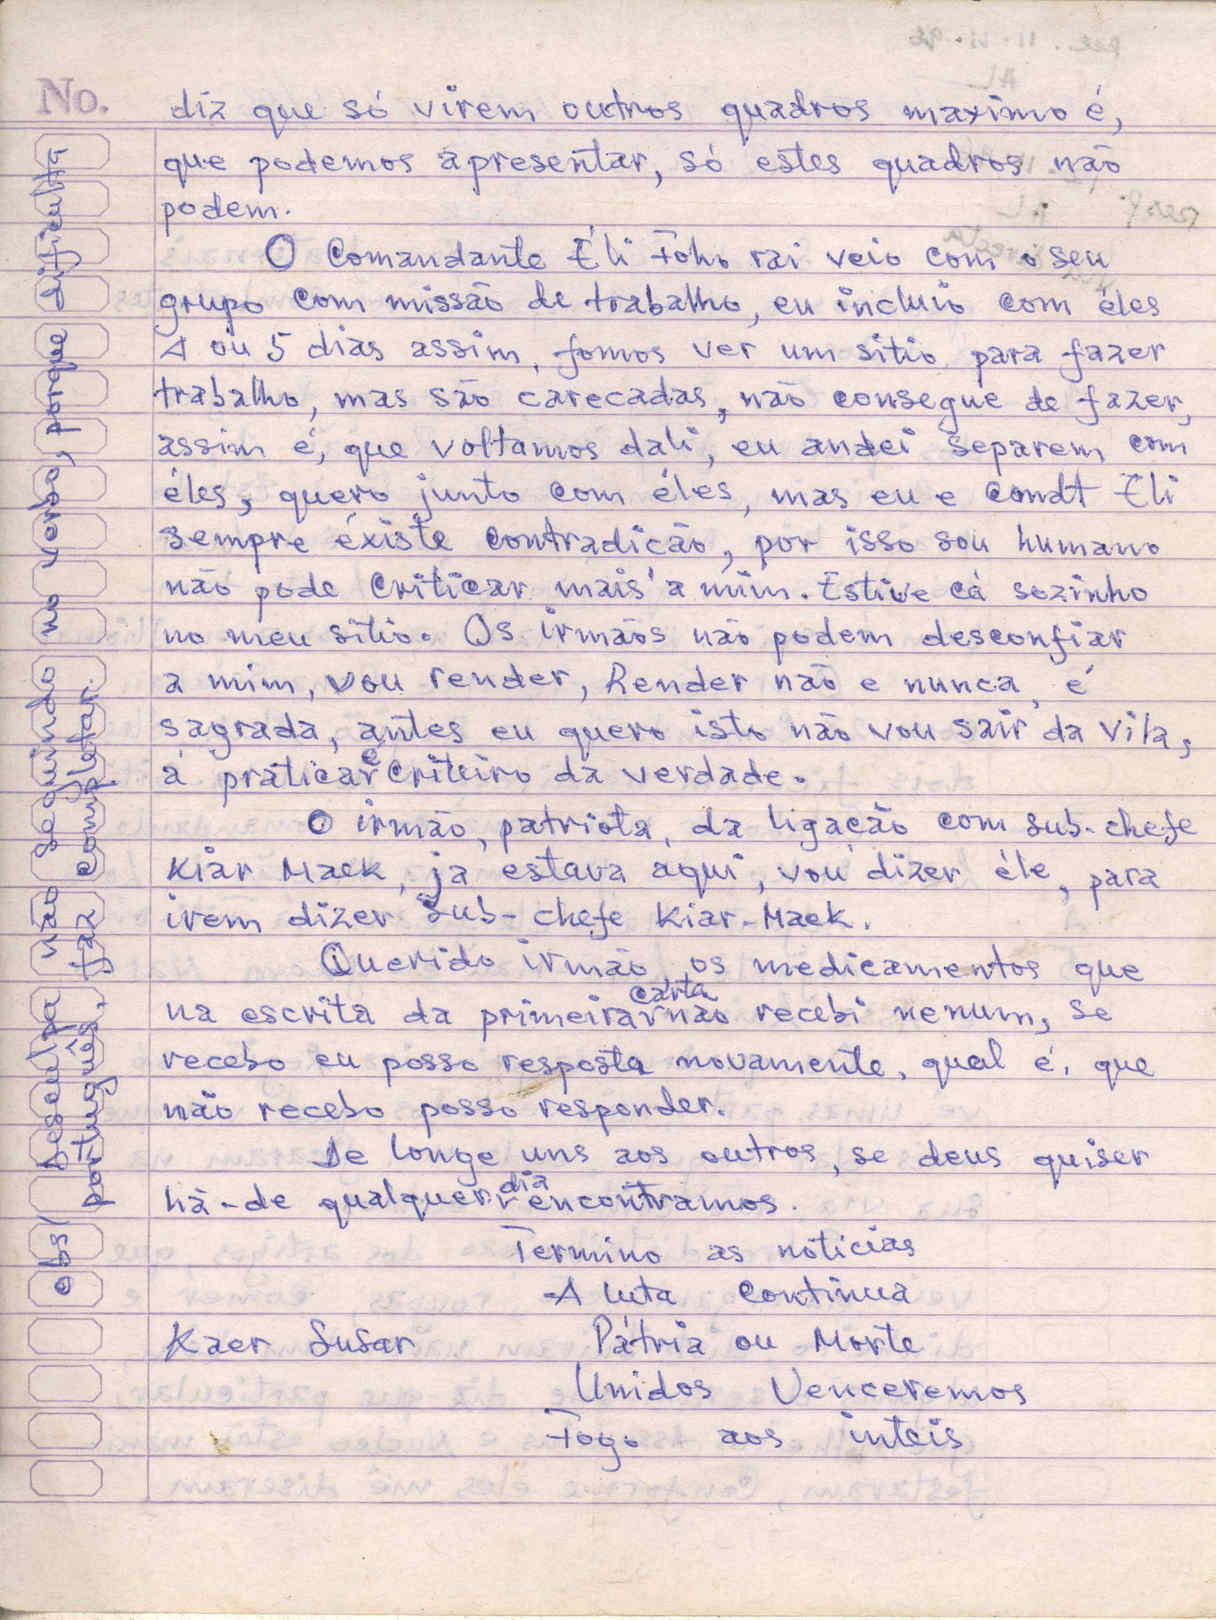 No.
diz que só virem outros quadros maximo é,
que podemos apresentar, só estes quadros não
podem.
O Comandante Éli Foho rai veio com o seu
grupo com missão de trabalho, eu incluio com éles
4 ou 5 dias assim, fomos ver um sitio para fazer
trabalho, mas são carecadas, não consegue de fazer,
assim é, que voltamos dali, eu andei separem com
éles, quero junto com éles, mas eu e condt Eli
sempre éxiste contradicão, por isso sou humano
não pode criticar mais a mim. Estive cá sozinho
no meu sitio. Os irmãos não podem desconfiar
a mim, vou render, Render não e nunca, é
sagrada, antes eu quero isto não vou sair da vila,
á praticar é criteiro da verdade.
O irmão, patriota, da ligacão com sub-chefe
Kiar Maek, ja estava aqui, vou dizer éle, para
irem dizer Sub-chefe Kiar-Maek.
Querido irmão, os medicamentos que
na escrita da primeira carta não recebi nenum, se
recebo eu posso resposta novamente, qual é, que
não recebo posso responder.
De longe uns aos outros, se deus quiser
há-de qualquer dia encontramos.
Termino as noticias
A luta continua
Kaer Susar Pátria ou Morte
Unidos Venceremos
Fogo aos inteis
obs/ Desculpa não seguindo no verbo, porque dificulta
português, faz completar.